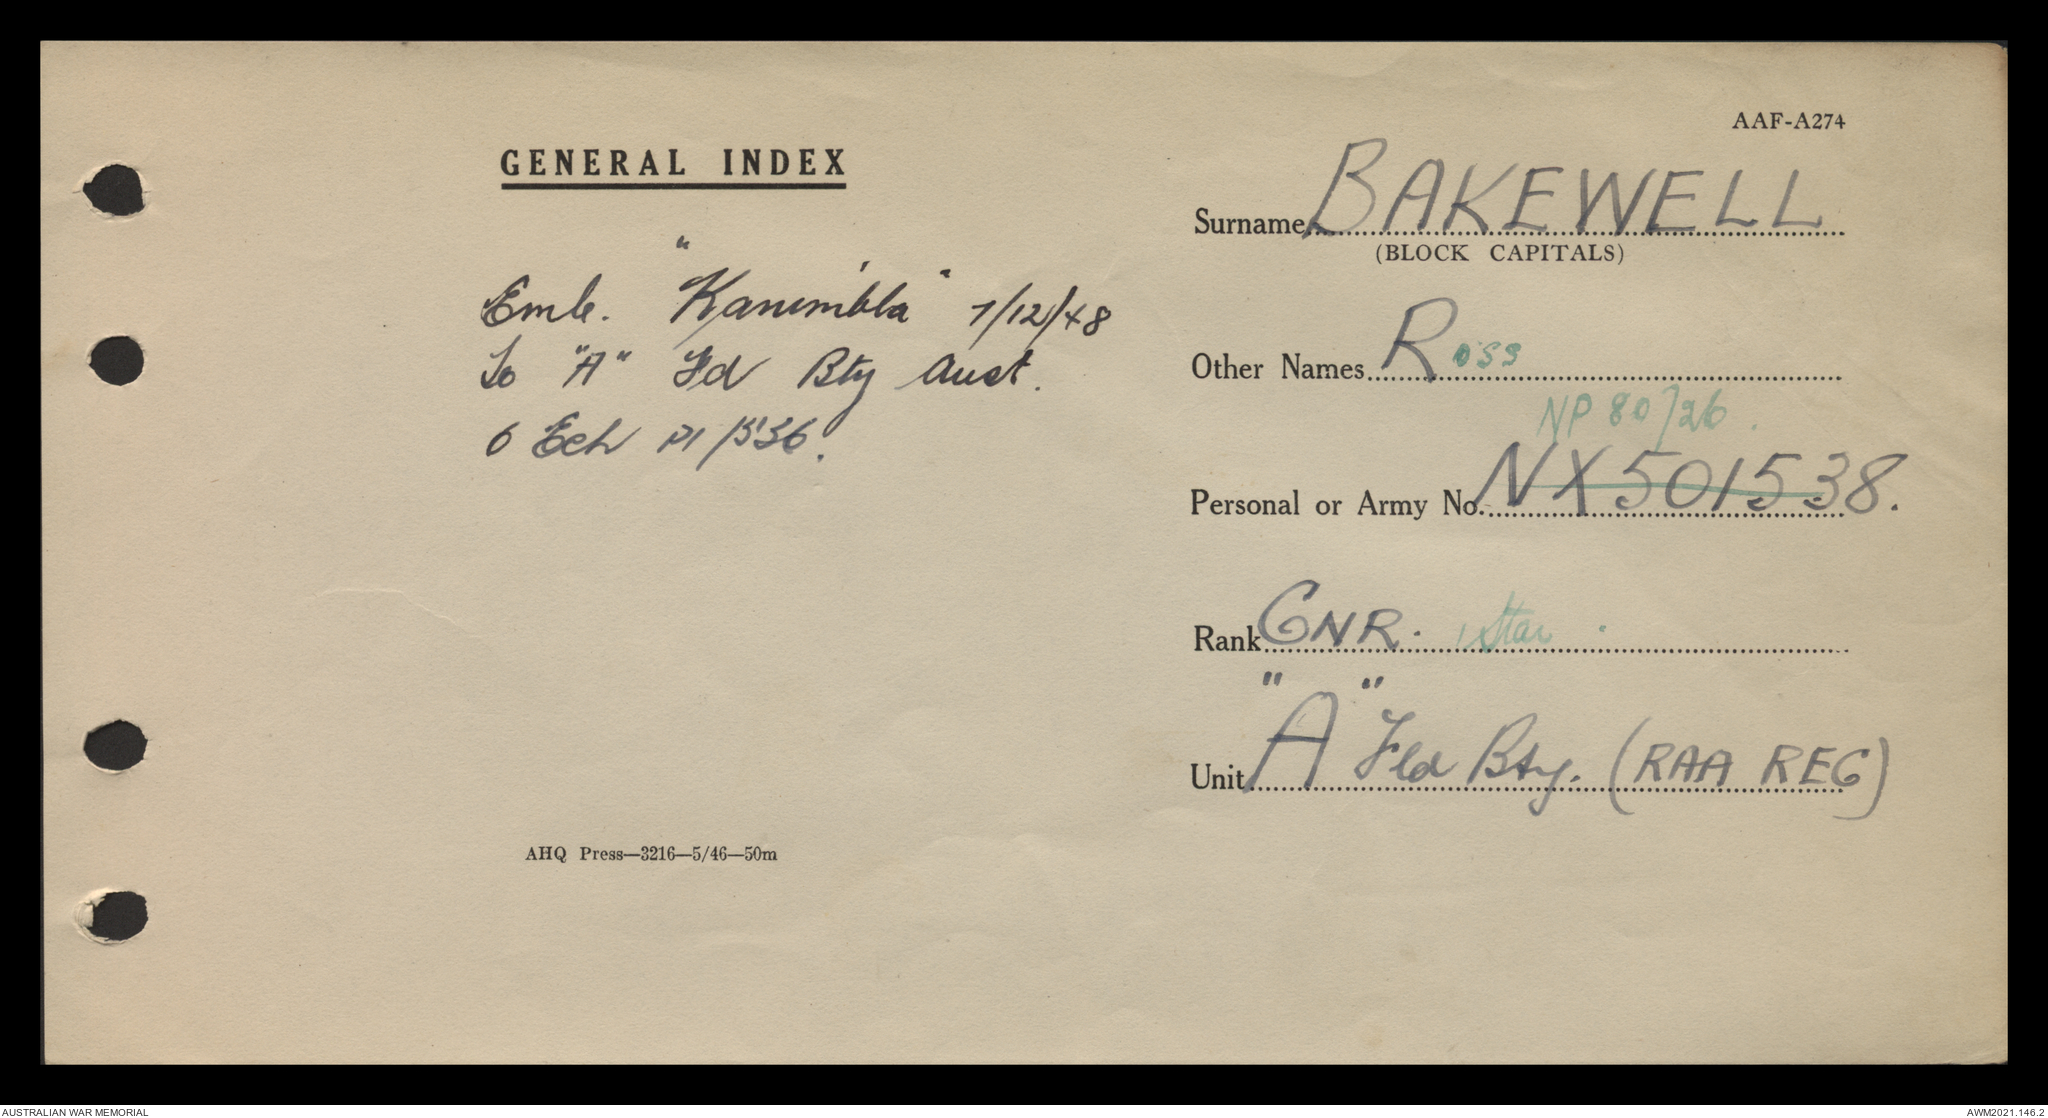 AAF-A274
GENERAL INDEX
Emb. "Kanimbla" 7/12/48
To "A" Fd Bty Aust.
6 Ech 21/1536.
AHQ Press—3216—5/46—50m
Surname BAKEWELL
(BLOCK CAPITALS)
Other Names Ross
NP 80/26.
Personal or Army No. NX501538.
Rank GNR. 1 Star.
Unit "A" Fld Bty. (RAA REG)
AUSTRALIAN WAR MEMORIAL
AWM2021.146.2